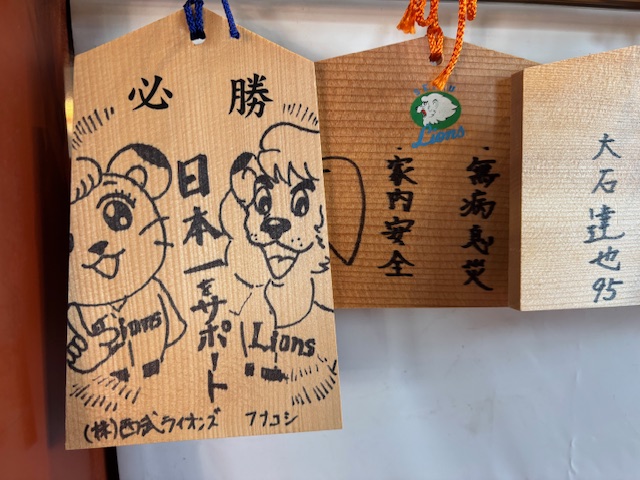 必勝
日本一をサポート
Lions
Lions
(株)西武ライオンズ フナコシ
Lions
無病息災
家内安全
大石達也
95